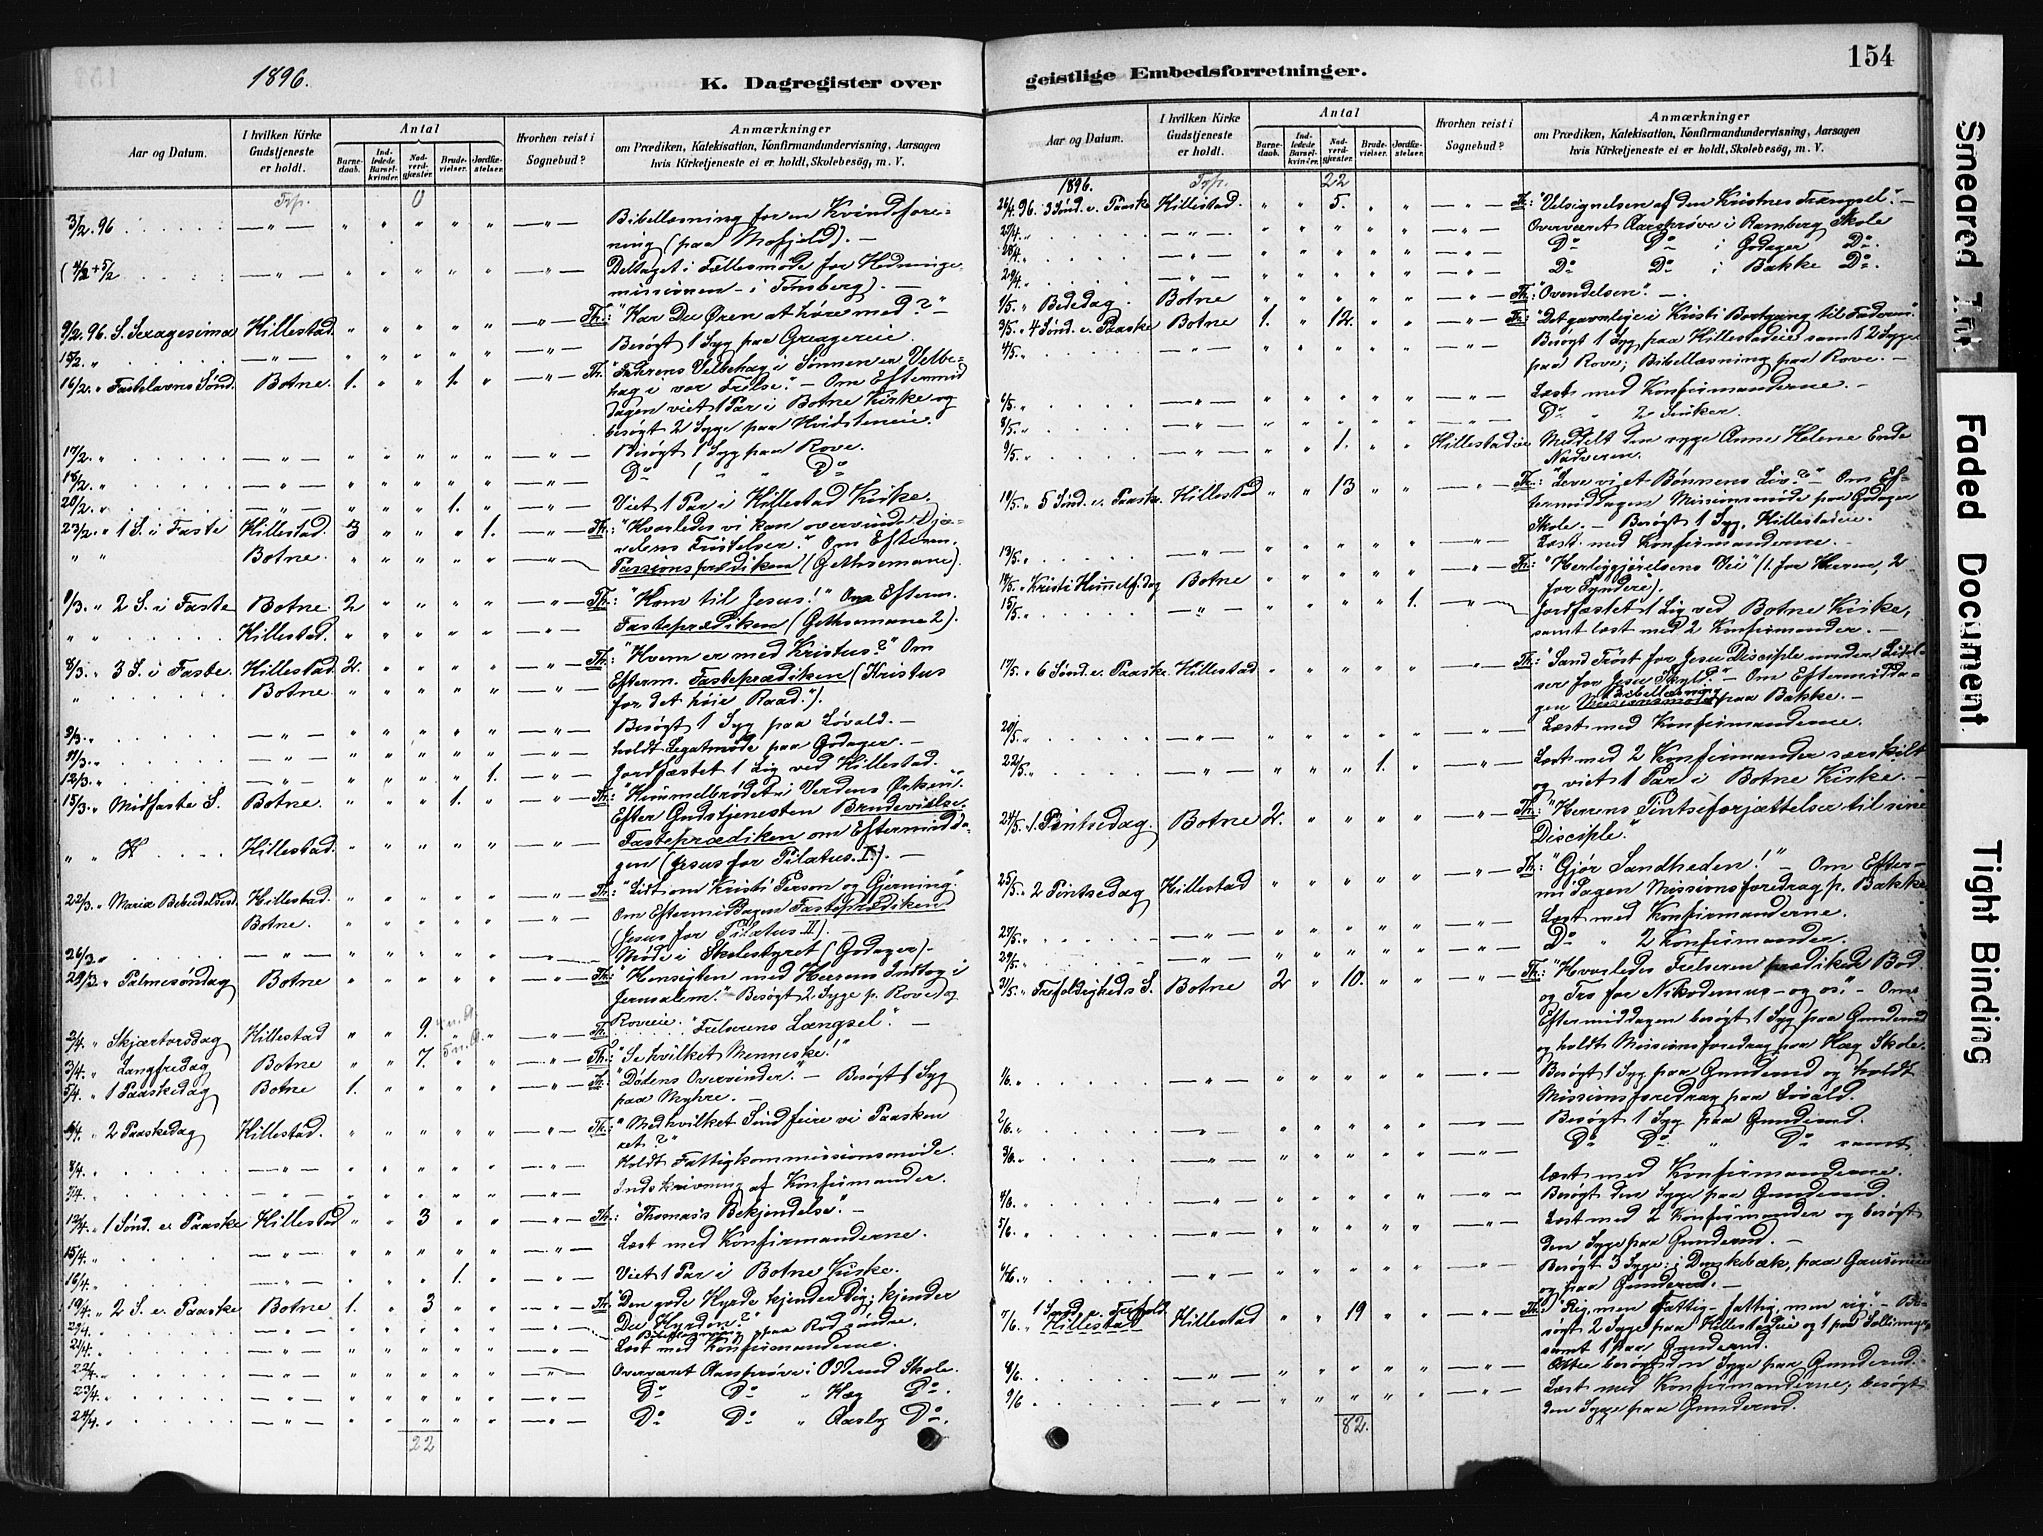 1896.
K. Dagregister over
Aar og Datum. I hvilken Kirke Gudstjeneste er holdt. Antal Barnedaab. Indledede Barselkvinder. Nadverdgjæster. Brudevielser. Jordfæstelser. Hvorhen reist i Sognebud? Anmærkninger om Prædiken, Katekisation, Konfirmandundervisning, Aarsagen hvis Kirketjeneste ei er holdt, Skolebesøg, m. V.
Trp. 0
3/2. 96 — " — " " " " " — " — Bibellæsning for en Kvindefore-
ning (paa Mofjeld). —
(4/2 + 5/2 " " " " " — " — Deltaget i Fællesmøde for Hedninge-
missionen - i Tønsberg). —
9/2. 96. S. Sexagesima Hillestad " " " " " — " — Th: "Har Du Øren at høre med?" —
15/2. " — " — " " " " " — " — Besøgt 1 Syg paa Greagereie.
16/2. " Fastelavns Sønd. Botne. 1. " " 1. " — " — Th: "Faderens Velbehag i Sønnen er Velbe-
hag i vor Frelse." — Om Eftermid
dagen viet 1 Par i Botne Kirke og
besøgt 2 Syge paa Hvidsteneie.
17/2. " — " — " " " " " — " — Besøgt 1 Syg paa Rove.
18/2. " — " — " " " " " — " — Do 1 " " Do
20/2. " — " — " " " 1. " — " — Viet 1 Par i Hillestad Kirke.
23/2. " 1 S. i Faste Hillestad. 3 " " " 1. — " — Th: "Hvorledes vi kan overvinde Djæ-
velens Fristelser." Om Efterm.
" " Botne. " " " " " — " — Passionsprædiken (Gethsemane).
1/3. " 2 S. i Faste Botne. 2 " " " " — " — Th: "Kom til Jesus!" Om Efterm.
" " Hillestad. " " " " " — " — Fasteprædiken (Gethsemane 2).
8/3. " 3 S. i Faste. Hillestad 2. " " " " — " — Th: "Hvem er med Kristus?" Om
" Botne " " " " " — " — Efterm. Fasteprædiken (Kristus
for det høie Raad.").
9/3. " — " — " " " " " — " — Besøgt 1 Syg paa Løvald. —
11/3. " — " — " " " " " — " — holdt Legatmøde paa Godager. —
12/3. " — " — " " " " 1. — " — Jordfæstet 1 Lig ved Hillestad.
15/3. " Midfaste S. Botne. " " " 1. " — " — Th: "Himmelbrødet i Verdens Ørken".
Efter Gudstjenesten Brudevielse.
" " Hillestad. " " " " " — " — Fasteprædiken om Eftermidda-
gen (Jesus for Pilatus. I). —
22/3. " Mariæ Bebudelsesd. Hillestad. " " " " " — " — Th: "Lidt om Kristi Person og Gjerning."
Botne. " " " " " — " — Om Eftermiddagen Fasteprædiken
(Jesus for Pilatus II). —
26/3 " — " — " " " " " — " — Møde i Skolestyret (Godager).
29/3 " Palmesøndag Botne " " " " " — " — Th: "Hensigten med Herrens Indtog i
Jerusalem." — Besøgt 2 Syge p. Rove og
Roveeie.
2/4. " Skjærtorsdag Hillestad " " 9. " " — " — Th: "Frelserens Længsel". —
3/4. " Langfredag Botne " " 7. " " — " — Th: "Se hvilket Menneske!"
5/4. " 1 Paaskedag Botne 1. " " " " — " — Th: "Dødens Overvinder." — Besøgt 1 Syg
paa Myhre. —
6/4. " 2 Paaskedag Hillestad. " " " " " — " — Th: "Med hvilket Sind feire vi Paasken
et?"
8/4. " — " — " " " " " — " — Holdt Fattigkommissionsmøde.
— " — " " " " " — " — Indskrivning af Konfirmander.
12/4. " 1 Sønd. e. Paaske Hillestad " " 3 " " — " — Th: "Thomas's Bekjendelse". —
15/4. — " — " " " " " — " — Læst med Konfirmanderne.
16/4. — " — " " " 1. " — " — Viet 1 Par i Botne Kirke.
19/4. " 2 S. e. Paaske Botne 1. " 3 " " — " — Th: "Den gode Hyrde kjender Dig; kjender
Du Hyrden?"
— " — " " " " " Bibellæsning paa Rød søndre.
— " — " " " " " — " — Læst med Konfirmanderne.
22/4. " — " — " " " " " — " — Overværet Aarsprøve i Odderud Skole.
23/4. " — " — " " " " " — " — Do Do " Hæg Do.
24/4. " — " — " " " " " — " — Do Do " Aasby Do.
22
geistlige Embedsforretninger.
154
Aar og Datum. I hvilken Kirke Gudstjeneste er holdt. Antal Barnedaab. Indledede Barselkvinder. Nadverdgjæster. Brudevielser. Jordfæstelser. Hvorhen reist i Sognebud? Anmærkninger om Prædiken, Katekisation, Konfirmandundervisning, Aarsagen hvis Kirketjeneste ei er holdt, Skolebesøg, m. V.
1896. Trp. 22
26/4. 96. 3 Sønd. e. Paaske Hillestad. " " 5. " " — " — Th: "Velsignelsen af den Kristnes Trængsel". —
— " — " " " " " — " — Overværet Aarsprøve i Ramberg Skole
28/4. — " — " " " " " — " — Do Do i Godager Do.
29/4. — " — " " " " " — " — Do Do i Bakke Do.
1/5. " Bededag. Botne " " " " " — " — Th: "Omvendelsen". —
3/5. " 4 Sønd. e. Paaske Botne 1. " 12. " " — " — Th: "Det gavnlige i Kristi Bortgang til Faderen".
4/5. " — " — " " " " " — " — Besøgt 1 Syg paa Hillestadeie samt 2 Syge
paa Rove; Bibellæsning paa Rove. —
6/5. " — " — " " " " " — " — Læst med Konfirmanderne. —
8/5. " — " — " " " " " — " — Do " 2 Sinker.
9/5. " — " — " " 1. " " Hillestadeie Meddelt den syge Anne Helene Ende
Nadveren.
10/5. " 5 Sønd. e. Paaske. Hillestad " " 13 " " — " — Th: "Leve vi et Bønnens Liv?" — Om Ef-
termiddagen Missionsmøde paa Godager
Skole. — Besøgt 1 Syg, Hillestadeie.
13/5. " — " — " " " " " — " — Læst med Konfirmanderne. —
14/5. " Kristi Himmelf.dag Botne " " " " " — " — Th: "Herliggjørelsens Vei" (1. for Herren, 2
for Syndere).
15/5. " — " — " " " " 1. — " — Jordfæstet 1 Lig ved Botne Kirke,
samt læst med 2 Konfirmander. —
17/5. " 6 Sønd. e. Paaske. Hillestad " " " " " — " — Th: "Sand Trøst for Jesu Disciple under Lidel-
ser for Jesu Skyld." — Om Eftermidda-
gen Bibellæsning paa Bakke. —
20/5. " — " — " " " " " — " — Læst med Konfirmanderne.
22/5. " — " — " " " 1. " — " — Læst med 2 Konfirmander særskilt
og viet 1 Par i Botne Kirke. —
24/5. " 1. Pintsedag. Botne 2. " " " " — " — Th: "Herrens Pintseforjættelser til sine
Disciple."
25/5. " 2 Pintsedag Hillestad " " " " " — " — Th: "Gjør Sandheden!" — Om Efter-
middagen Missionsforedrag p. Bakke
27/5. " — " — " " " " " — " — Læst med Konfirmanderne.
29/5. " — " — " " " " " — " — Do " 2 Konfirmander.
31/5. " Trefoldigheds S. Botne 2 " 10. " " — " — Th: "Hvorledes Frelseren prædiker Bod
og Tro for Nikodemus — og os." — Om
Eftermiddagen besøgt 1 Syg paa Gunderud
og holdt Missionsforedrag paa Hæg Skole.
1/6. " — " — " " " " " — " — Besøgt 1 Syg paa Gunderud og holdt
Missionsforedrag paa Løvald.
2/6. " — " — " " " " " — " — Besøgt 1 Syg paa Gunderud.
3/6. " — " — " " " " " — " — Do Do " Do samt
læst med Konfirmanderne.
4/6. " — " — " " " " " — " — Besøgt den Syge paa Gunderud.
5/6. " — " — " " " " " — " — Læst med 2 Konfirmander og besøgt
den Syge paa Gunderud. —
6/6. " — " — " " " " " — " — Besøgt 3 Syge: i Dunskebæk, paa
og paa Gunderud. —
7/6. " 1 Sønd. e. Trefold. Hillestad Hillestad " " 19 " " — " — Th: "Rig, men Fattig — fattig, men rig". — Be-
søgt 2 Syge paa Hillestadeie og 1 paa
samt 1 paa Gunderud.
8/6. — " — " " " " " — " — Atter besøgt den Syge paa Gunderud.
9/6 — " — " " " " " — " — Læst med Konfirmanderne; besøgt
den Syge paa Gunderud.
82.
Smeared Ink
Faded Document
Tight Binding